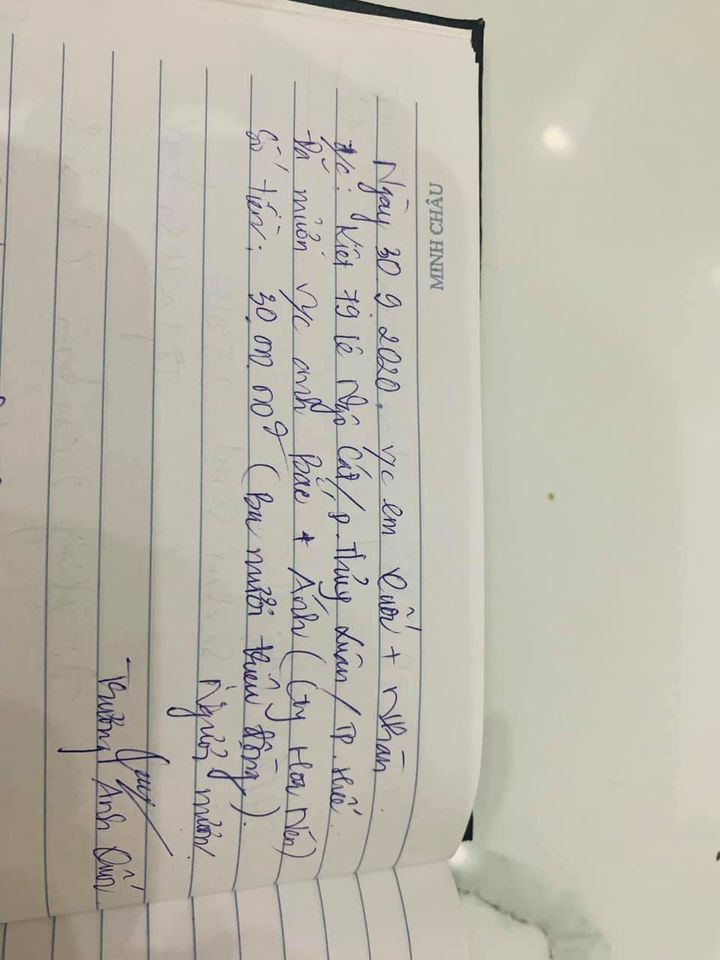 MINH CHÂU
Ngày 30.9.2020. v/c em Quốc + Nhàn
đ/c: Kiệt 79 Lê Ngô Cát/p. Thủy Xuân/TP. Huế
Đã mượn v/c anh Bắc + Ánh (Cty Hoa Nén)
Số tiền: 30.000.000đ (Ba mươi triệu đồng).
Người mượn
Trương Ánh Quốc